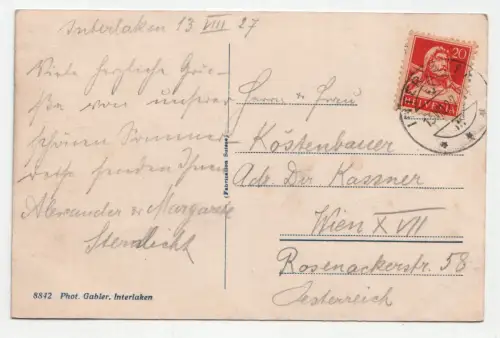 Interlaken 13 VIII 27
Viele herzliche Grüs-
se von unserer
schönen Sommer-
reise senden Ihnen
Alexander & Margarete
Sternlicht
(Fabrication Suisse)
20
HELVETIA
Herrn & Frau
Köstenbauer
Adr Dir Kassner
Wien XVII
Rosenackerstr. 58
Oesterreich
8842 Phot. Gabler, Interlaken